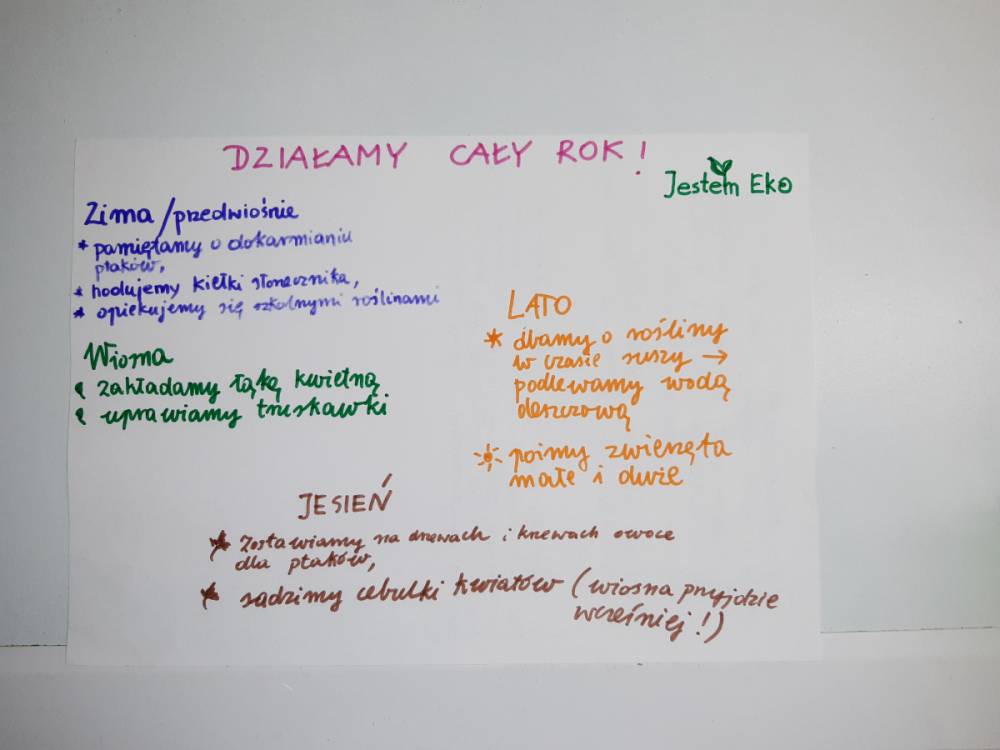 DZIAŁAMY CAŁY ROK!
Jestem Eko
Zima/przedwiośnie
* pamiętamy o dokarmianiu
ptaków,
* hodujemy kiełki słonecznika,
* opiekujemy się szkolnymi roślinami
Wiosna
zakładamy łąkę kwietną
uprawiamy truskawki
LATO
* dbamy o rośliny
w czasie suszy →
podlewamy wodą
deszczową
poimy zwierzęta
małe i duże
JESIEŃ
* Zostawiamy na drzewach i krzewach owoce
dla ptaków,
* sadzimy cebulki kwiatów (wiosna przyjdzie
wcześniej!)